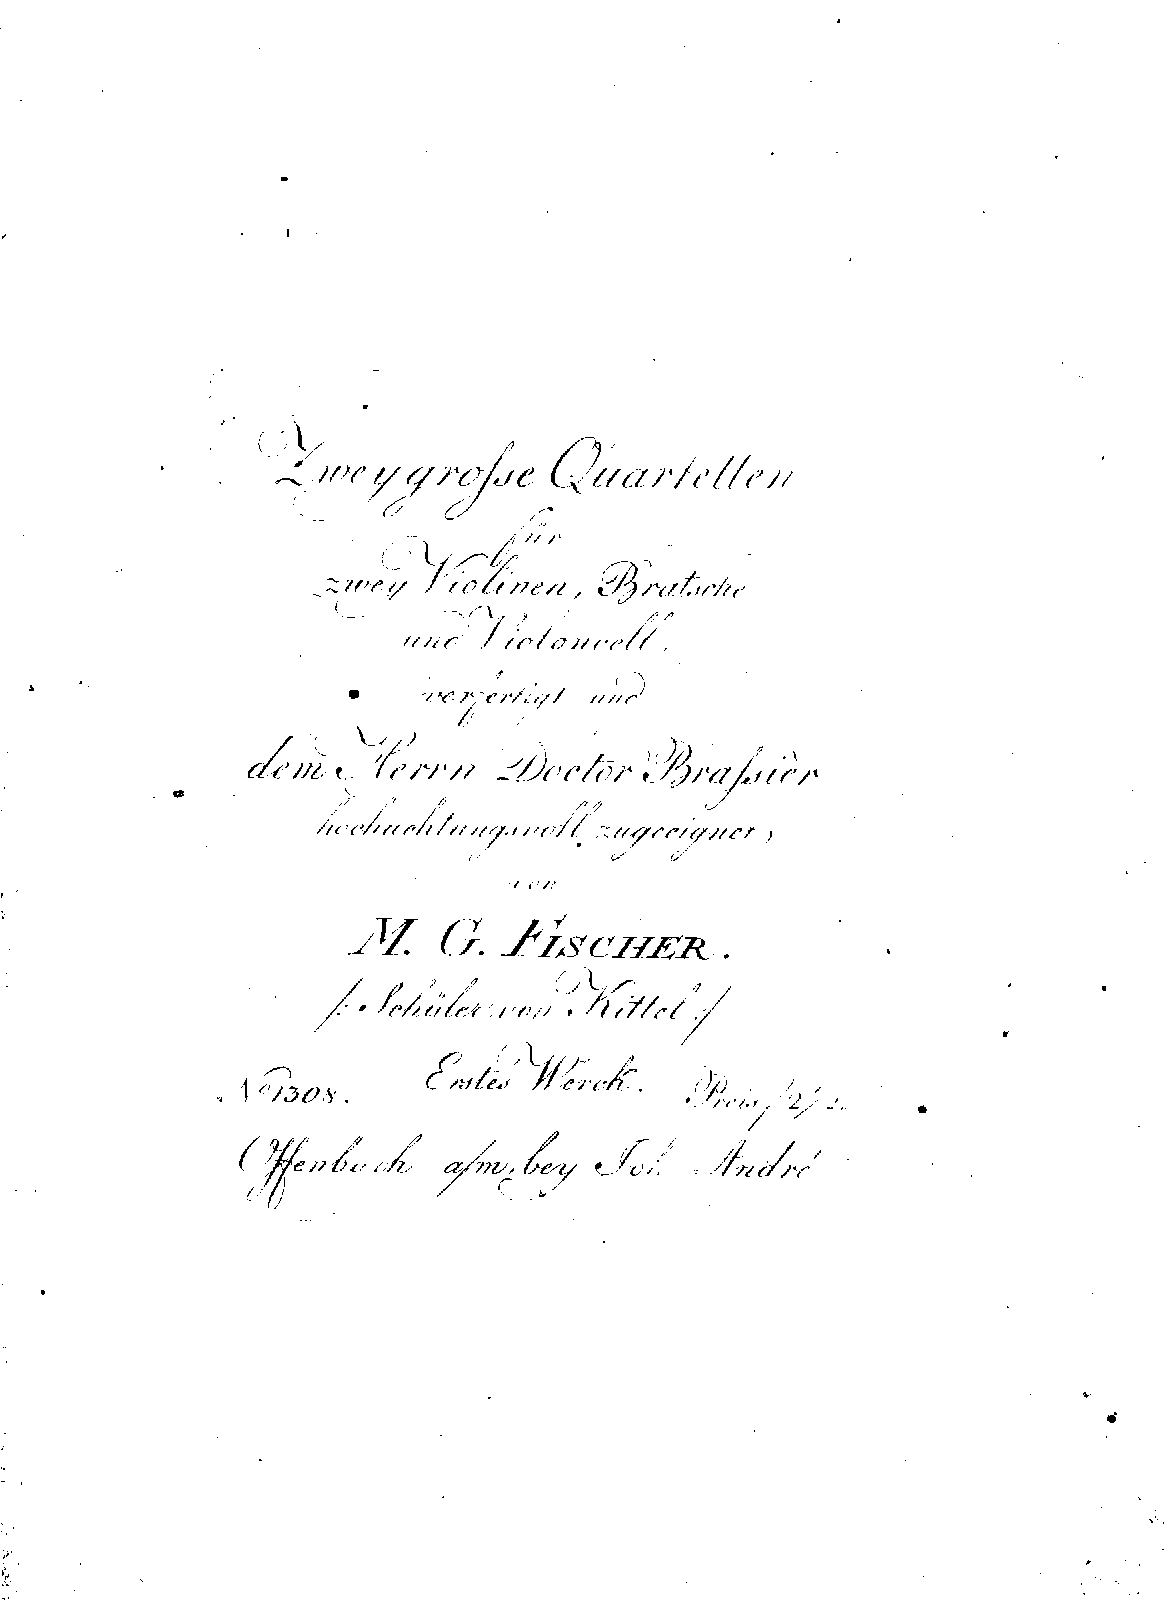 Zwey grosse Quartetten
für
zwey Violinen, Bratsche
und Violoncell,
verfertigt und
dem Herrn Doctor Brassier
hochachtungsvoll zugeeignet,
von
M. G. FISCHER.
/: Schüler von Kittel :/
Erstes Werck.
No 1308. Preis f 2/
Offenbach a/m, bey Joh. André